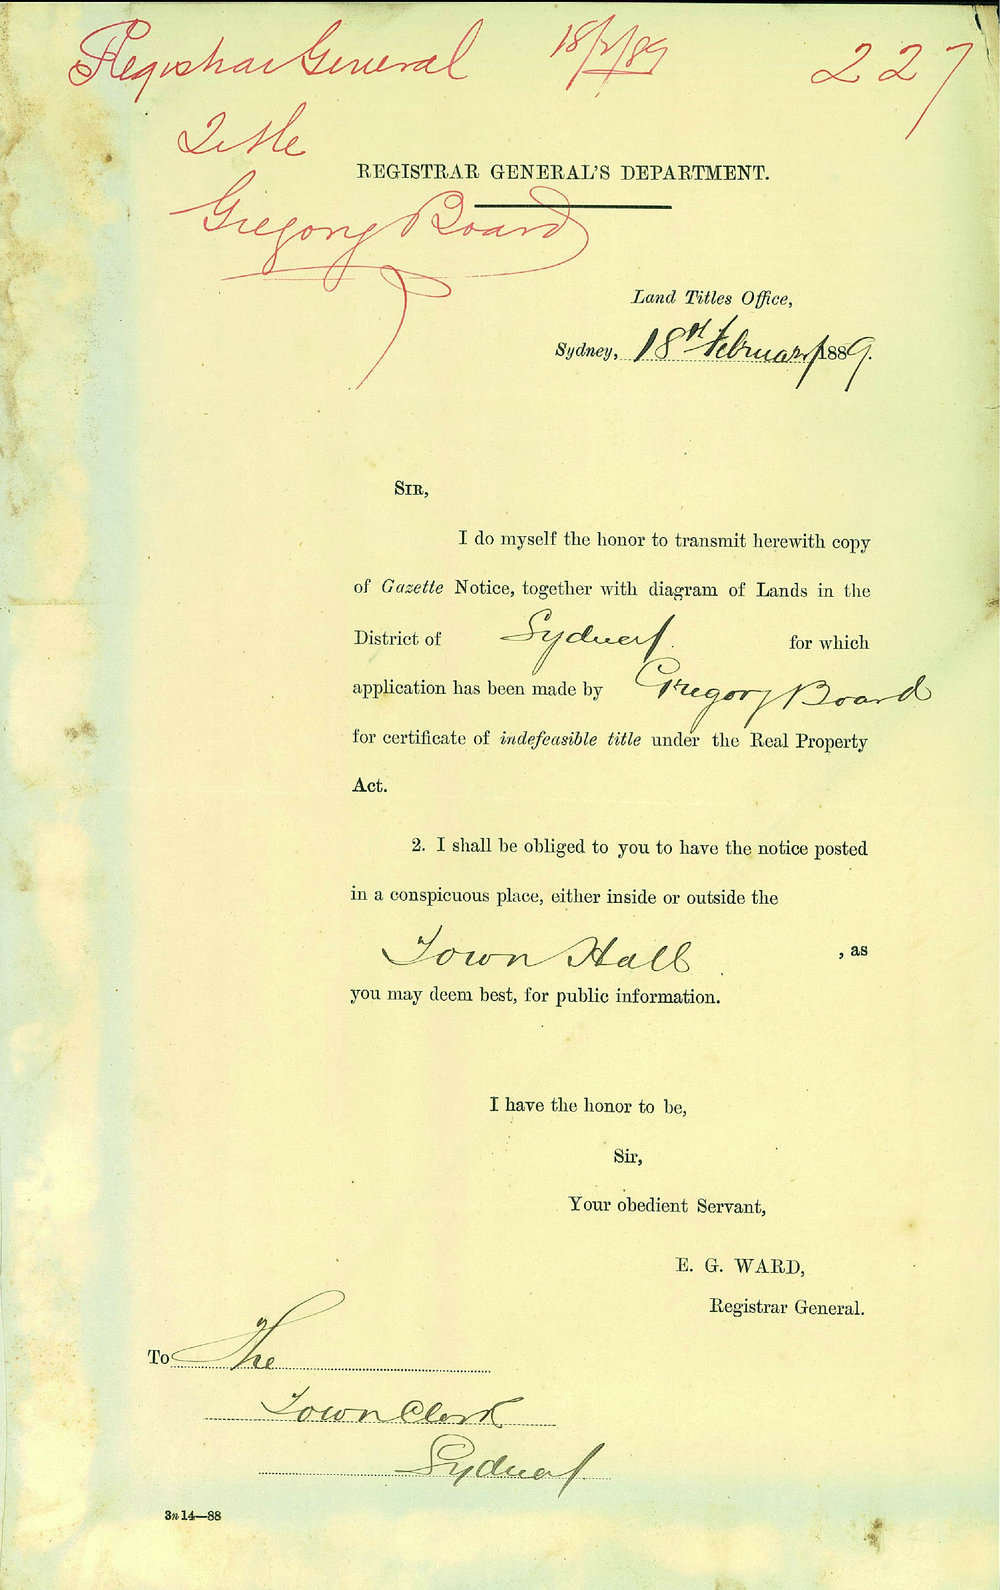 Registrar General 18/2/89 227
Title
REGISTRAR GENERAL'S DEPARTMENT.
Gregory Board
Land Titles Office,
Sydney, 18th February 1889.
SIR,
I do myself the honor to transmit herewith copy
of Gazette Notice, together with diagram of Lands in the
District of Sydney for which
application has been made by Gregory Board
for certificate of indefeasible title under the Real Property
Act.
2. I shall be obliged to you to have the notice posted
in a conspicuous place, either inside or outside the
Town Hall , as
you may deem best, for public information.
I have the honor to be,
Sir,
Your obedient Servant,
E. G. WARD,
Registrar General.
To The
Town Clerk
Sydney
3n 14—88